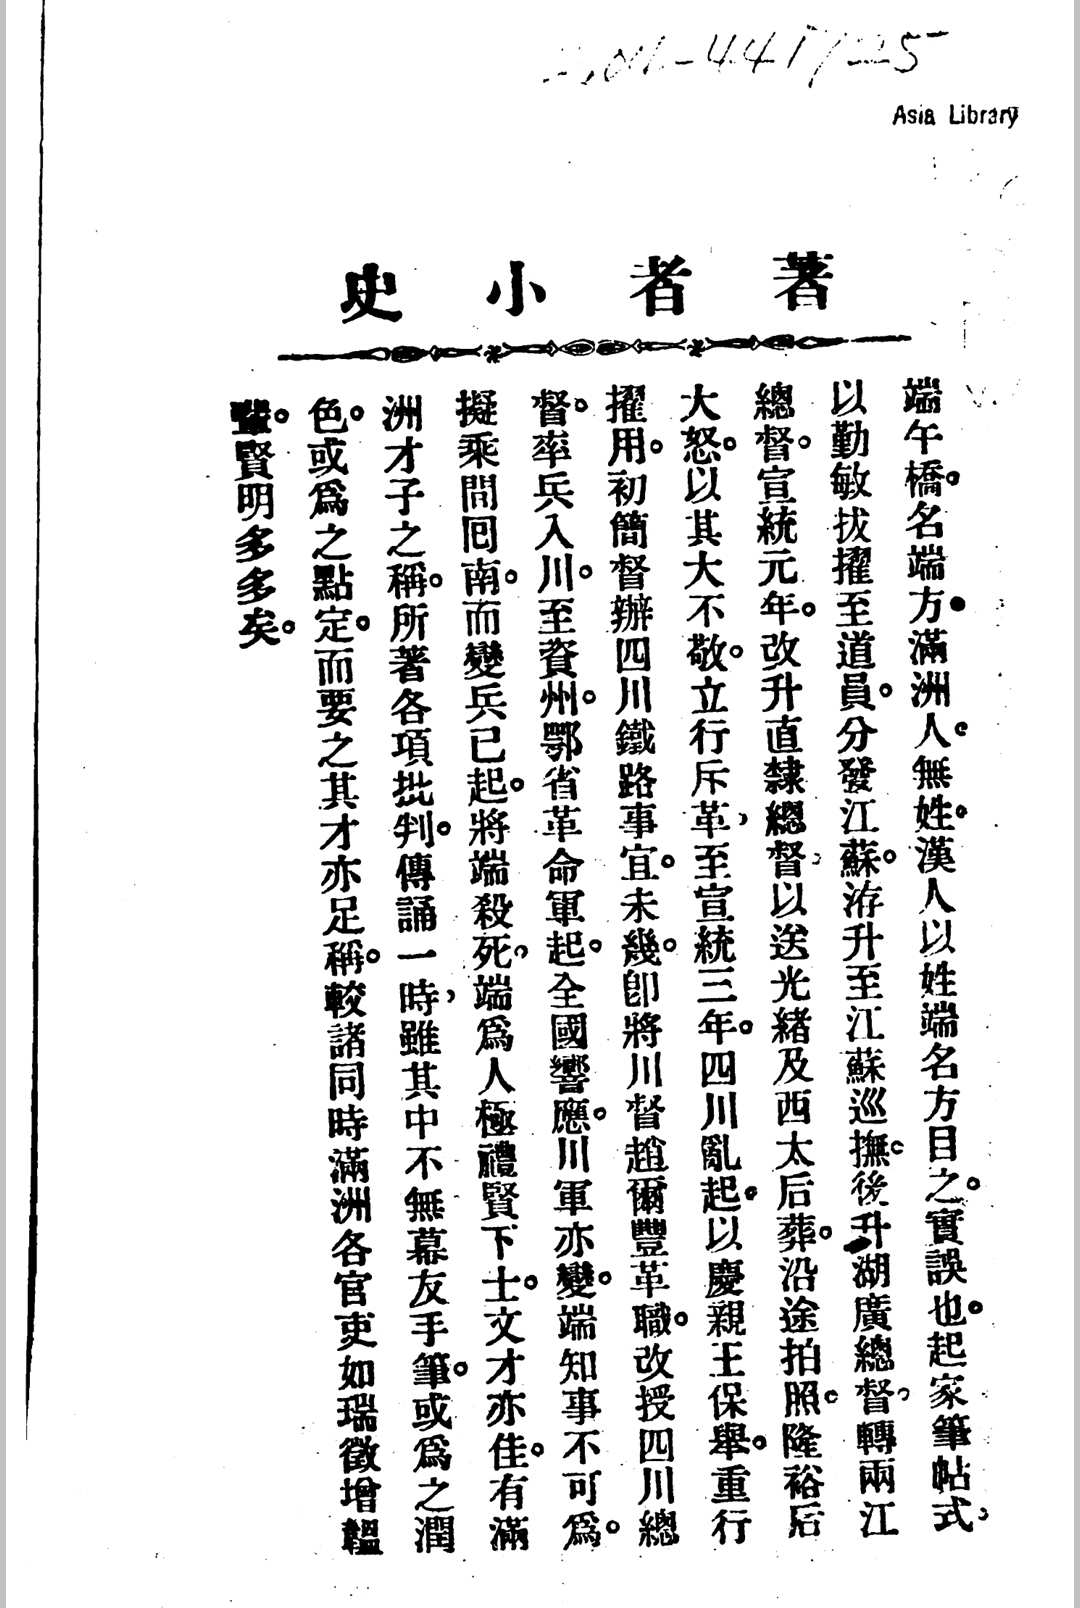 Asia Library
著者小史
端午橋。名端方。滿洲人。無姓。漢人以姓端名方目之。實誤也。起家筆帖式、
以勤敏拔擢至道員。分發江蘇。洊升至江蘇巡撫。後升湖廣總督、轉兩江
總督。宣統元年。改升直隸總督、以送光緒及西太后葬。沿途拍照。隆裕后
大怒。以其大不敬。立行斥革、至宣統三年。四川亂起。以慶親王保舉。重行
擢用。初簡督辦四川鐵路事宜。未幾。卽將川督趙爾豐革職。改授四川總
督。率兵入川。至資州。鄂省革命軍起。全國響應。川軍亦變。端知事不可爲。
擬乘間囘南。而變兵已起。將端殺死、端爲人極禮賢下士。文才亦佳。有滿
洲才子之稱。所著各項批判。傳誦一時、雖其中不無幕友手筆。或爲之潤
色。或爲之點定。而要之其才亦足稱。較諸同時滿洲各官吏如瑞徵增韞
輩。賢明多多矣。